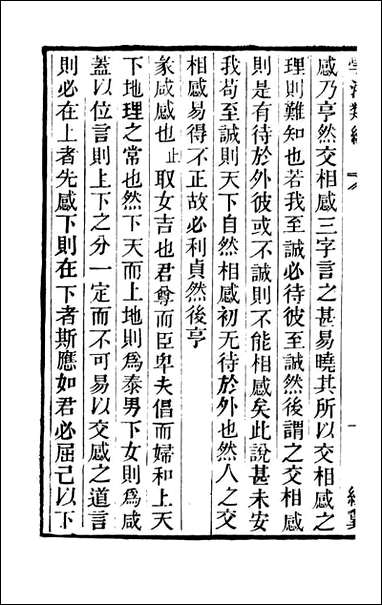 感乃亨然交相感三字言之甚易曉其所以交相感之
理則難知也若我至誠必待彼至誠然後謂之交相感
則是有待於外彼或不誠則不能相感矣此說甚未安
我苟至誠則天下自然相感初无待於外也然人之交
相感易得不正故必利貞然後亨
彖咸感也止取女吉也君尊而臣卑夫倡而婦和上天
下地理之常也然下天而上地則為泰男下女則為咸
蓋以位言則上下之分一定而不可易以交感之道言
則必在上者先感下則在下者斯應如君必屈己以下